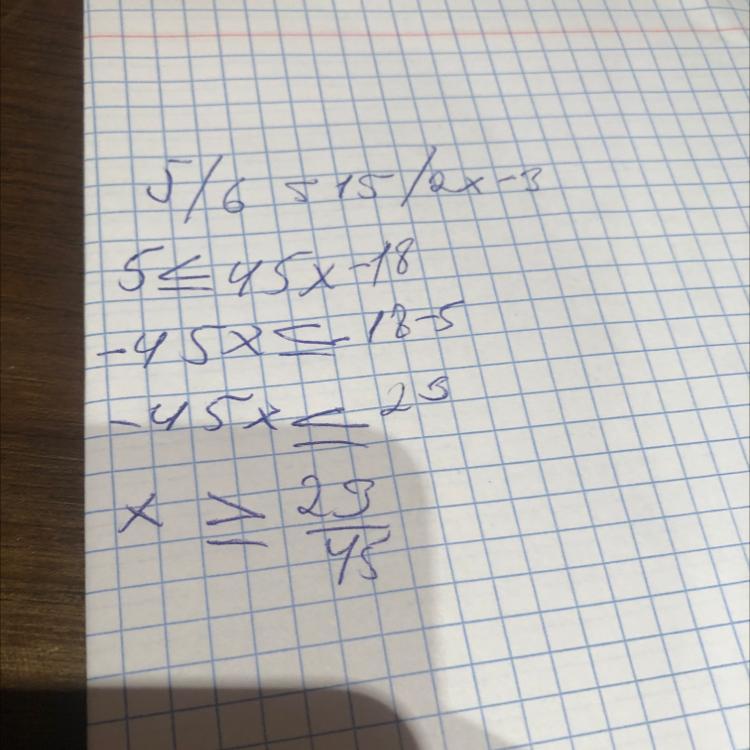 5/6 ≤ 15/2x-3
5 ≤ 45x-18
-45x ≤ 18-5
-45x ≤ 23
x ≥ 23/45